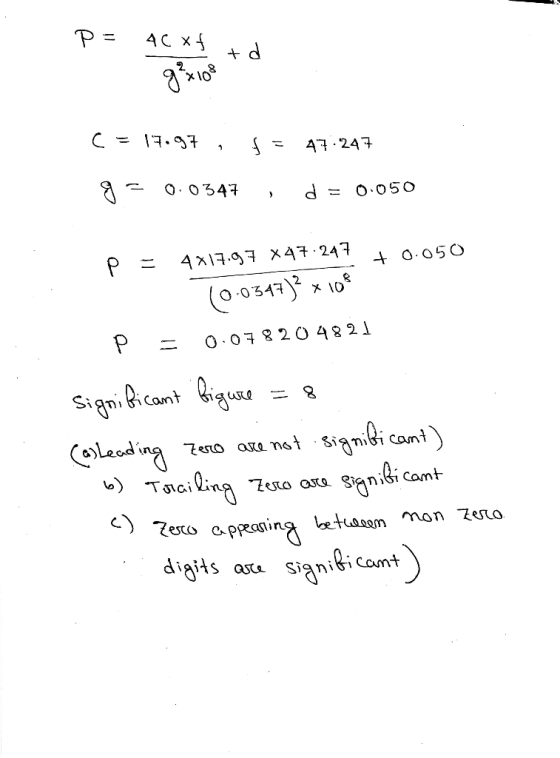 P = 4C x f / g²x10⁸ + d
C = 17.97 , f = 47.247
g = 0.0347 , d = 0.050
P = 4x17.97 x47.247 / (0.0347)² x 10⁸ + 0.050
P = 0.078204821
Significant figure = 8
(a) Leading zero are not significant)
b) Trailing zero are significant
c) Zero appearing between non zero
digits are significant)